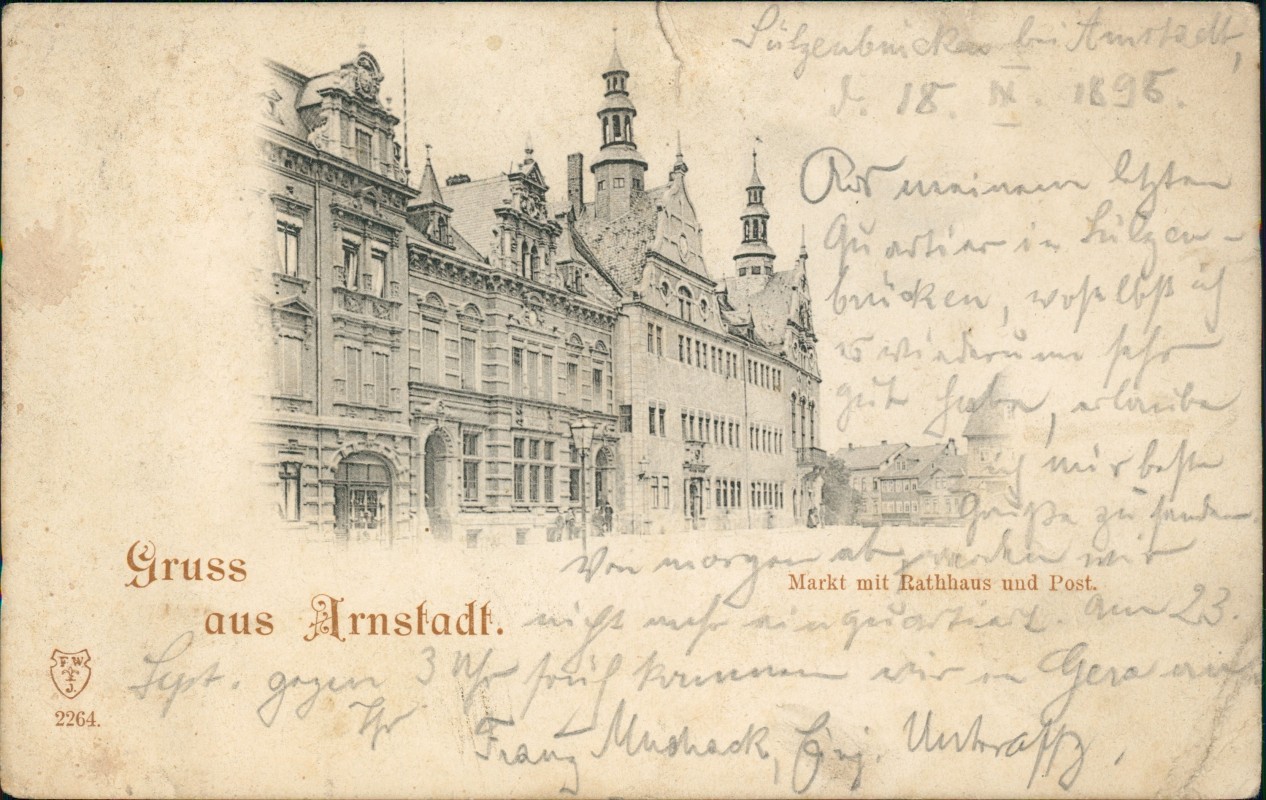 Sülzenbrücken bei Arnstadt,
d. 18. IX. 1896.
Aus meinem letzten
Quartier in Sülzen-
brücken, woselbst ich
es wiederum sehr
gut habe, erlaube
ich mir beste
Grüße zu senden.
Von morgen ab werden wir
Markt mit Rathhaus und Post.
Gruss
aus Arnstadt.
nicht mehr einquartiert. Am 23.
Sept. gegen 3 Uhr früh kommen wir in Gera an
Ihr
Franz, Einj. Unteroffz,
F W
J.
2264.